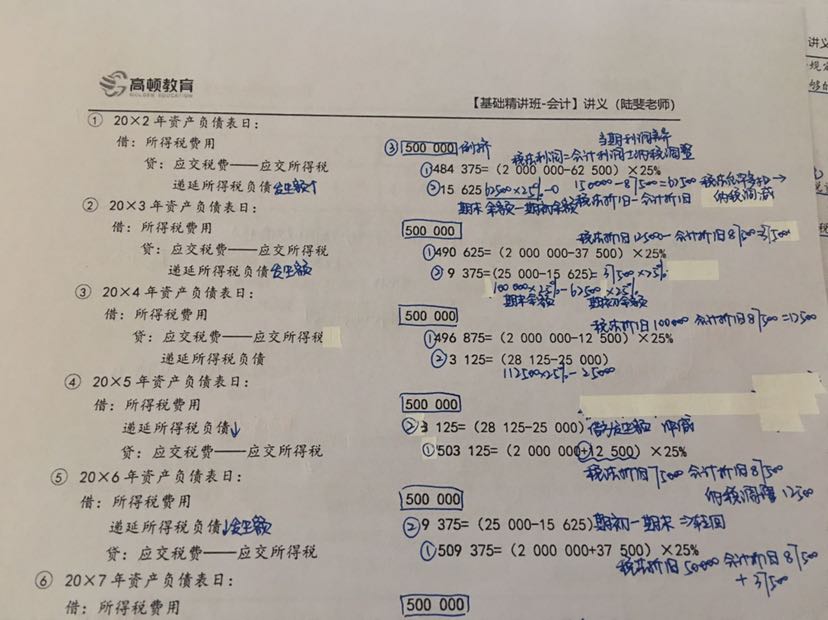 高顿教育
GOLDEN EDUCATION
【基础精讲班-会计】讲义（陆斐老师）
讲义
① 20×2 年资产负债表日：
当期利润表
借：所得税费用 ③ 500 000 倒挤
税法利润=会计利润±纳税调整
贷：应交税费——应交所得税 ①484 375=（2 000 000-62 500）×25%
递延所得税负债 发生额↑ ②15 625 62500×25%-0 150000-87500=62500 税法允许多扣→
期末余额-期初余额 税法折旧-会计折旧 纳税调减
② 20×3 年资产负债表日：
税法折旧125000-会计折旧87500=37500
借：所得税费用 500 000
贷：应交税费——应交所得税 ①490 625=（2 000 000-37 500）×25%
递延所得税负债 发生额 ②9 375=（25 000-15 625）=37500×25%
100000×25%-62500×25%
期末余额 期初余额
③ 20×4 年资产负债表日：
借：所得税费用 500 000
税法折旧100000 会计折旧87500=12500
贷：应交税费——应交所得税 ①496 875=（2 000 000-12 500）×25%
递延所得税负债 ②3 125=（28 125-25 000）
112500×25%-25000
④ 20×5 年资产负债表日：
借：所得税费用 500 000
递延所得税负债↓ ②3 125=（28 125-25 000）借方发生额 降低
贷：应交税费——应交所得税 ①503 125=（2 000 000+12 500）×25%
税法折旧75000 会计折旧87500
纳税调增12500
⑤ 20×6 年资产负债表日：
借：所得税费用 500 000
递延所得税负债↓发生额 ②9 375=（25 000-15 625）期初-期末 ⇒转回
贷：应交税费——应交所得税 ①509 375=（2 000 000+37 500）×25%
税法折旧50000 会计折旧87500
+37500
⑥ 20×7 年资产负债表日：
借：所得税费用 500 000